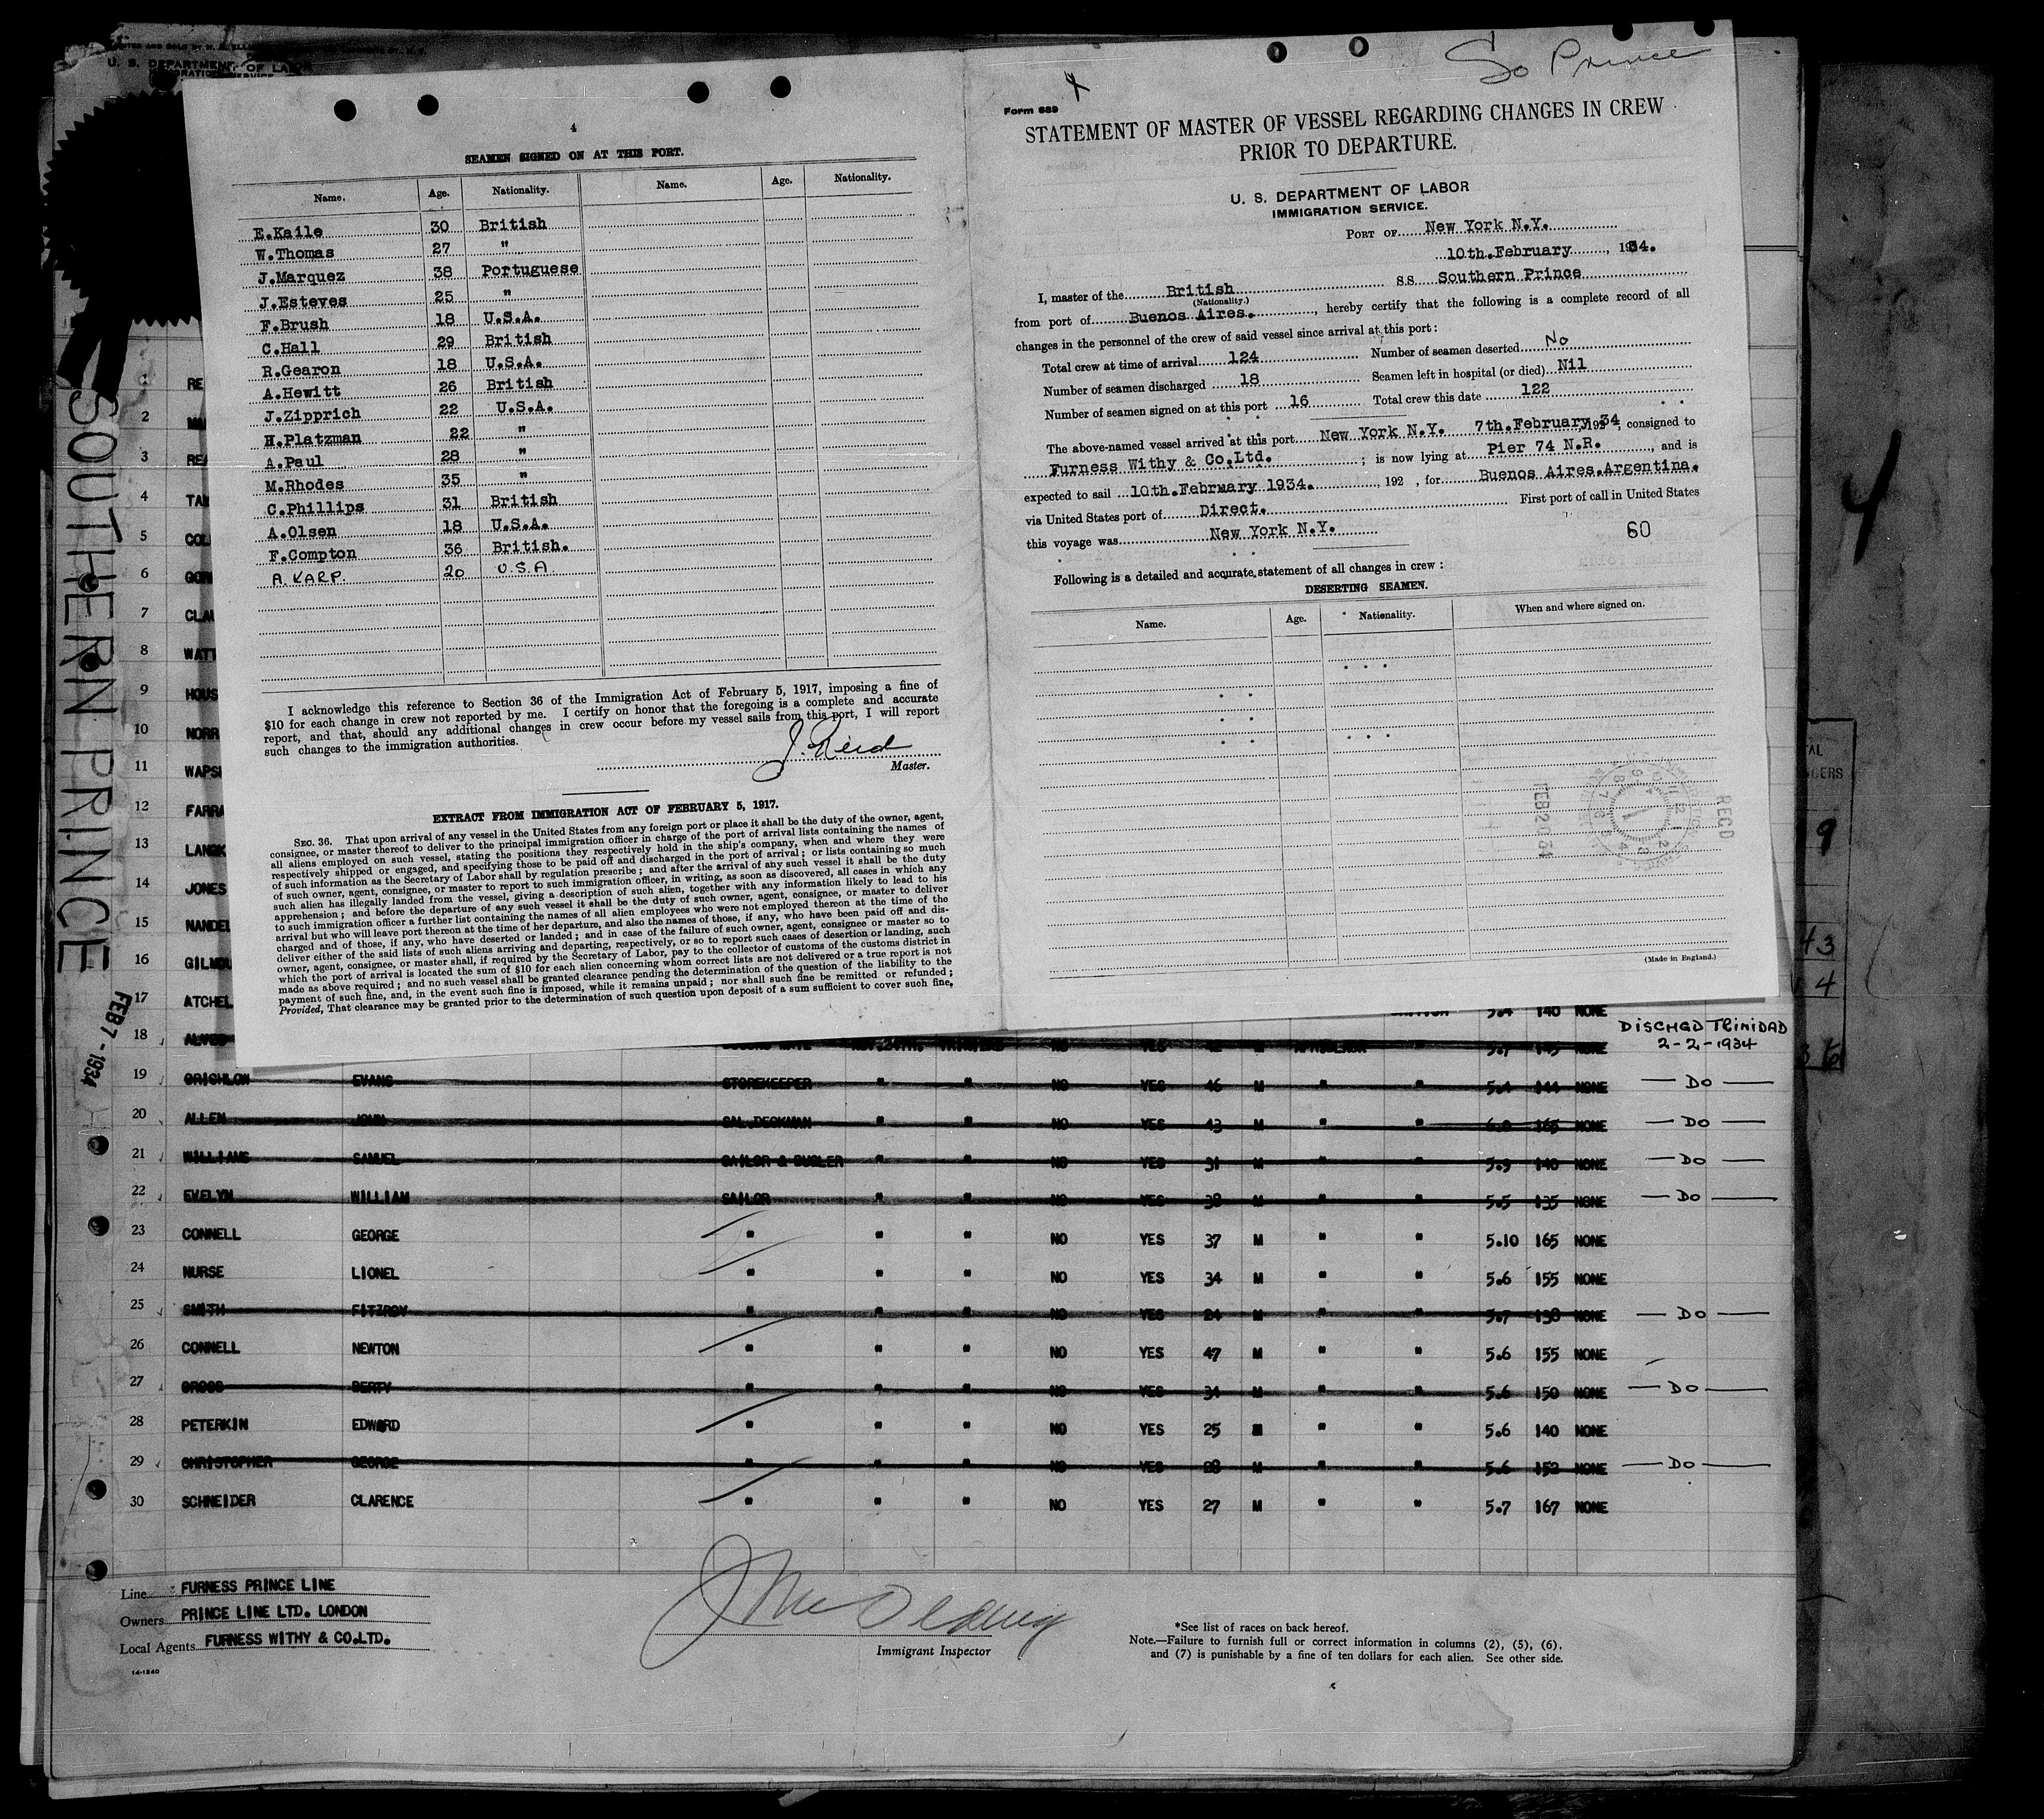 U. S. DEPARTMENT OF LABOR
4
SEAMEN SIGNED ON AT THIS PORT.
Name. Age. Nationality. Name. Age. Nationality.
E.Kaile 30 British
W.Thomas 27 "
J.Marquez 38 Portuguese
J.Esteves 25 "
F.Brush 18 U.S.A.
C.Hall 29 British
R.Gearon 18 U.S.A.
A.Hewitt 26 British
J.Zipprich 22 U.S.A.
H.Platzman 22 "
A.Paul 28 "
M.Rhodes 35 "
C.Phillips 31 British
A.Olsen 18 U.S.A.
F.Compton 36 British.
A. KARP. 20 U.S.A
I acknowledge this reference to Section 36 of the Immigration Act of February 5, 1917, imposing a fine of
$10 for each change in crew not reported by me. I certify on honor that the foregoing is a complete and accurate
report, and that, should any additional changes in crew occur before my vessel sails from this port, I will report
such changes to the immigration authorities.
J. Reid
Master.
EXTRACT FROM IMMIGRATION ACT OF FEBRUARY 5, 1917.
SEC. 36. That upon arrival of any vessel in the United States from any foreign port or place it shall be the duty of the owner, agent,
consignee, or master thereof to deliver to the principal immigration officer in charge of the port of arrival lists containing the names of
all aliens employed on such vessel, stating the positions they respectively hold in the ship's company, when and where they were
respectively shipped or engaged, and specifying those to be paid off and discharged in the port of arrival; or lists containing so much
of such information as the Secretary of Labor shall by regulation prescribe; and after the arrival of any such vessel it shall be the duty
of such owner, agent, consignee, or master to report to such immigration officer, in writing, as soon as discovered, all cases in which any
such alien has illegally landed from the vessel, giving a description of such alien, together with any information likely to lead to his
apprehension; and before the departure of any such vessel it shall be the duty of such owner, agent, consignee, or master to deliver
to such immigration officer a further list containing the names of all alien employees who were not employed thereon at the time of the
arrival but who will leave port thereon at the time of her departure, and also the names of those, if any, who have been paid off and dis-
charged and of those, if any, who have deserted or landed; and in case of the failure of such owner, agent, consignee or master so to
deliver either of the said lists of such aliens arriving and departing, respectively, or so to report such cases of desertion or landing, such
owner, agent, consignee, or master shall, if required by the Secretary of Labor, pay to the collector of customs of the customs district in
which the port of arrival is located the sum of $10 for each alien concerning whom correct lists are not delivered or a true report is not
made as above required; and no such vessel shall be granted clearance pending the determination of the question of the liability to the
payment of such fine, and, in the event such fine is imposed, while it remains unpaid; nor shall such fine be remitted or refunded;
Provided, That clearance may be granted prior to the determination of such question upon deposit of a sum sufficient to cover such fine,
So Prince
Form 689
STATEMENT OF MASTER OF VESSEL REGARDING CHANGES IN CREW
PRIOR TO DEPARTURE.
U. S. DEPARTMENT OF LABOR
IMMIGRATION SERVICE.
PORT OF New York N.Y.
10th.February , 1934.
I, master of the British SS Southern Prince
(Nationality.)
from port of Buenos Aires. , hereby certify that the following is a complete record of all
changes in the personnel of the crew of said vessel since arrival at this port:
Total crew at time of arrival 124 Number of seamen deserted No
Number of seamen discharged 18 Seamen left in hospital (or died) Nil
Number of seamen signed on at this port 16 Total crew this date 122
The above-named vessel arrived at this port New York N.Y. 7th.February, 1934, consigned to
Furness Withy & Co.Ltd. ; is now lying at Pier 74 N.R. , and is
expected to sail 10th.February 1934. , 192 , for Buenos Aires.Argentina.
via United States port of Direct. First port of call in United States
this voyage was New York N.Y. 60
Following is a detailed and accurate statement of all changes in crew:
DESERTING SEAMEN.
Name. Age. Nationality. When and where signed on.
REC'D
FEB 20 34
(Made in England.)
SOUTHERN PRINCE
FEB 7 - 1934
4
9
43
1
2
3
4
5
6
7
8
9
10
11
12
13
14
15
16
17 140 NONE
18 DISCHGD TRINIDAD
2-2-1934
19 EVANS STOREKEEPER " " NO YES 46 M " " 5.4 144 NONE — DO —
20 ALLEN JOHN " " NO YES 43 M " " 165 NONE — DO —
21 WILLIAMS SAMUEL " " NO YES 31 M " " 5.9 140 NONE — DO —
22 EVELYN WILLIAM SAILOR " " NO YES 38 M " " 5.5 135 NONE — DO —
23 CONNELL GEORGE " " " NO YES 37 M " " 5.10 165 NONE
24 NURSE LIONEL " " " NO YES 34 M " " 5.6 155 NONE
25 SMITH FITZROY " " " NO YES 24 M " " 5.7 138 NONE — DO —
26 CONNELL NEWTON " " " NO YES 47 M " " 5.6 155 NONE
27 BERTY " " " NO YES 34 M " " 5.6 150 NONE — DO —
28 PETERKIN EDWARD " " " NO YES 25 M " " 5.6 140 NONE
29 CHRISTOPHER GEORGE " " " NO YES 28 M " " 5.6 152 NONE — DO —
30 SCHNEIDER CLARENCE " " " NO YES 27 M " " 5.7 167 NONE
Line FURNESS PRINCE LINE
Owners PRINCE LINE LTD. LONDON
Local Agents FURNESS WITHY & CO.LTD.
14-1240
Immigrant Inspector
*See list of races on back hereof.
Note.—Failure to furnish full or correct information in columns (2), (5), (6),
and (7) is punishable by a fine of ten dollars for each alien. See other side.